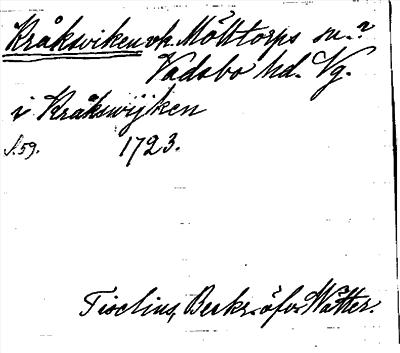 Kråksviken vk. Mölltorps sn.?
Vadsbo hd. Vg.
i Kråkswijken
S. 59. 1723.
Tiselius, Beskr. öfver Wätter.